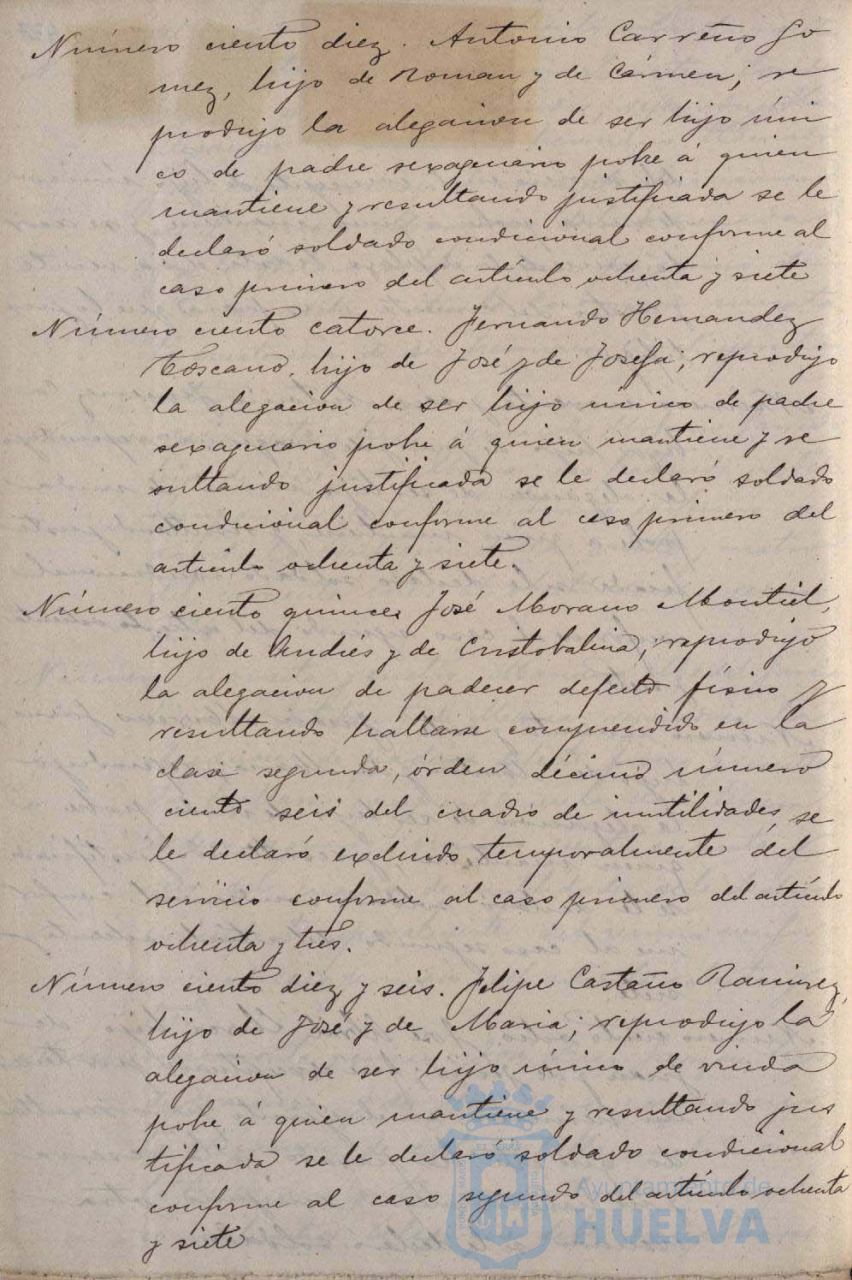 Número ciento diez. Antonio Carreño Go
mez, hijo de Roman y de Cármen; re
produjo la alegacion de ser hijo úni
co de padre sexagenario pobre á quien
mantiene y resultando justificada se le
declaró soldado condicional conforme al
caso primero del artículo ochenta y siete
Número ciento catorce. Fernando Hernandez
Toscano, hijo de José y de Josefa; reprodujo
la alegacion de ser hijo unico de padre
sexagenario pobre á quien mantiene y re
sultando justificada se le declaró soldado
condicional conforme al caso primero del
artículo ochenta y siete.
Número ciento quince. José Morano Montiel,
hijo de Andrés y de Cristobalina; reprodujo
la alegacion de padecer defecto físico y
resultando hallarse comprendido en la
clase segunda, órden décimo número
ciento seis del cuadro de inutilidades, se
le declaró excluido temporalmente del
servicio conforme al caso primero del artículo
ochenta y tres.
Número ciento diez y seis. Felipe Castaño Ramirez,
hijo de José y de Maria; reprodujo la
alegacion de ser hijo único de viuda
pobre á quien mantiene y resultando jus
tificada se le declaró soldado condicional
conforme al caso segundo del artículo ochenta
y siete
Ayuntamiento de
HUELVA